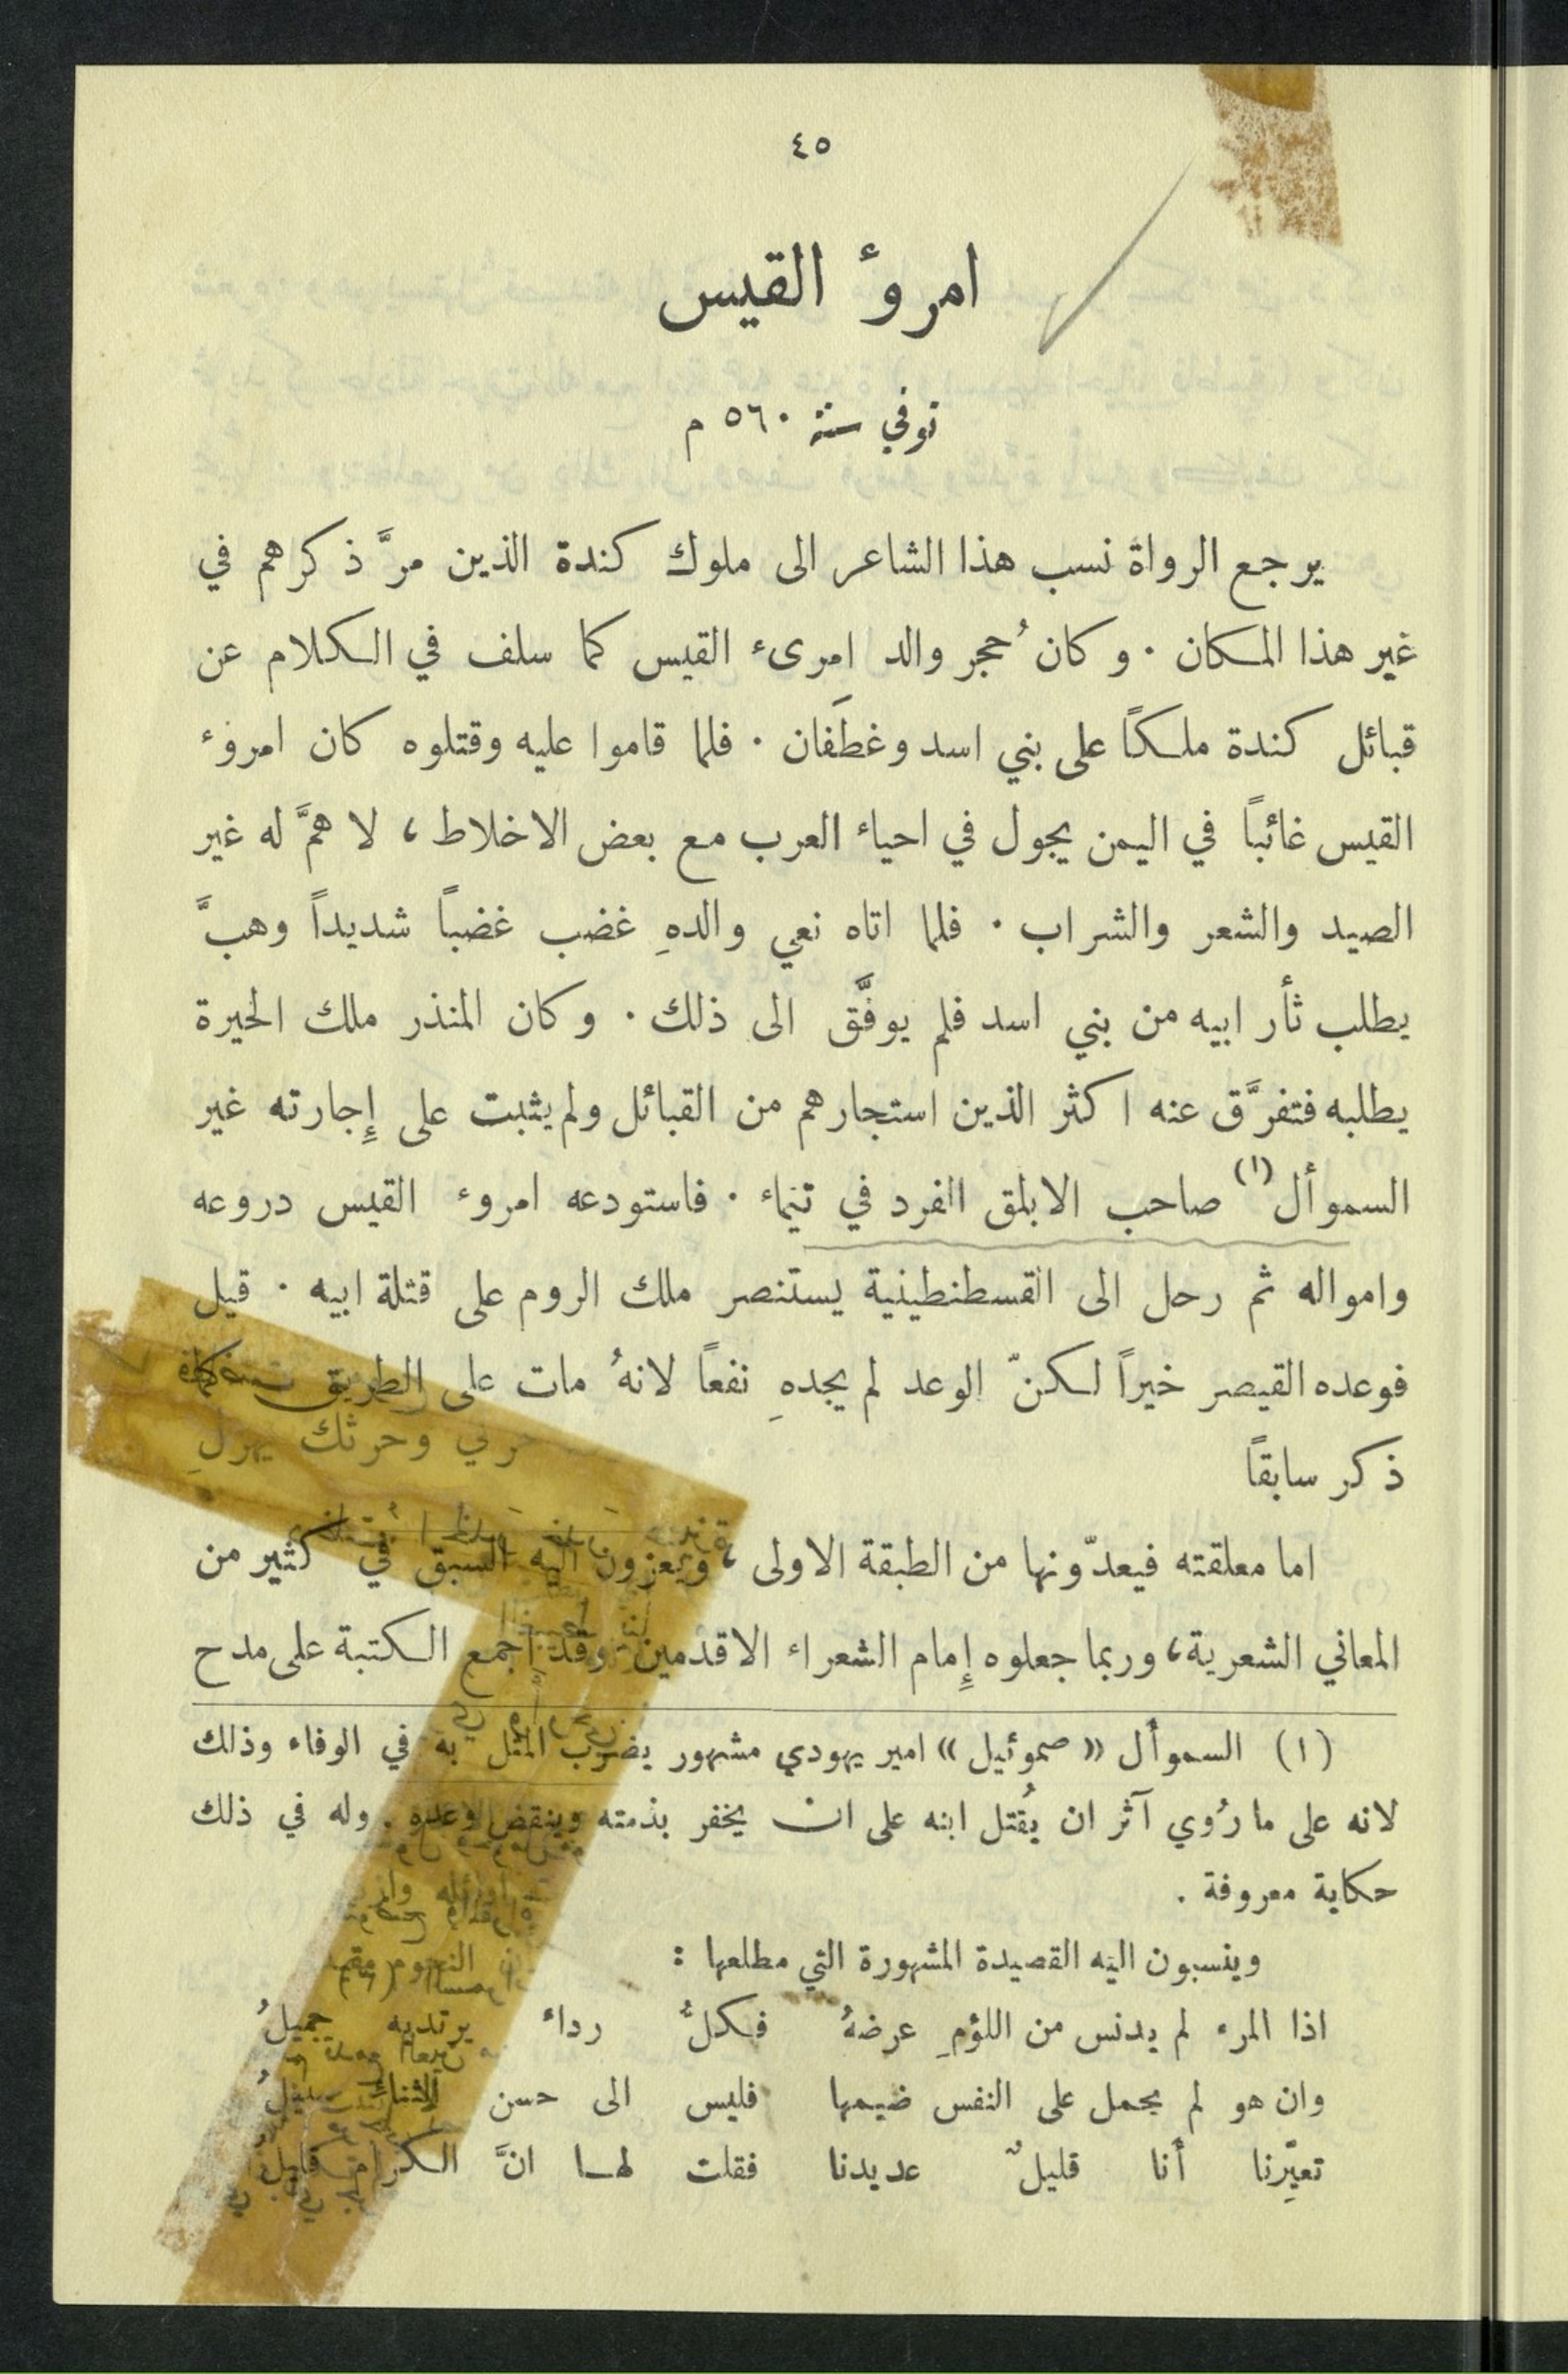 ٤٥
امروءُ القيس
توفي سنة ٥٦٠ م
يرجع الرواة نسب هذا الشاعر الى ملوك كندة الذين مرَّ ذكرهم في
غير هذا المكان . وكان حُجر والد امرىء القيس كما سلف في الكلام عن
قبائل كندة ملكاً على بني اسد وغطَفان . فلما قاموا عليه وقتلوه كان امروء
القيس غائباً في اليمن يجول في احياء العرب مع بعض الاخلاط ، لا همَّ له غير
الصيد والشعر والشراب . فلما اتاه نعي والدهِ غضب غضباً شديداً وهبَّ
يطلب ثأر ابيه من بني اسد فلم يوفَّق الى ذلك . وكان المنذر ملك الحيرة
يطلبه فتفرَّق عنه اكثر الذين استجارهم من القبائل ولم يثبت على إِجارته غير
السموأل (١) صاحب الابلق الفرد في تيماء . فاستودعه امروء القيس دروعه
وامواله ثم رحل الى القسطنطينية يستنصر ملك الروم على قتلة ابيه . قيل
فوعده القيصر خيراً لكنّ الوعد لم يجدهِ نفعاً لانهُ مات على الطريق كما
ذكر سابقاً
اما معلقته فيعدّونها من الطبقة الاولى ، ويعزون اليه السبق في كثير من
المعاني الشعرية ، وربما جعلوه إِمام الشعراء الاقدمين . وقد اجمع الكتبة على مدح
(١) السموأل « صموئيل » امير يهودي مشهور يضرب المثل به في الوفاء وذلك
لانه على ما رُوي آثر ان يُقتل ابنه على ان يخفر بذمته وينقض وعده . وله في ذلك
حكاية معروفة .
وينسبون اليه القصيدة المشهورة التي مطلعها :
اذا المرء لم يدنس من اللؤمِ عرضهُ فكلُّ رداء يرتديه جميلُ
وان هو لم يحمل على النفس ضيمها فليس الى حسن الثناءِ سبيلُ
تعيِّرنا أنا قليلٌ عديدنا فقلت لها انَّ الكرام قليلُ